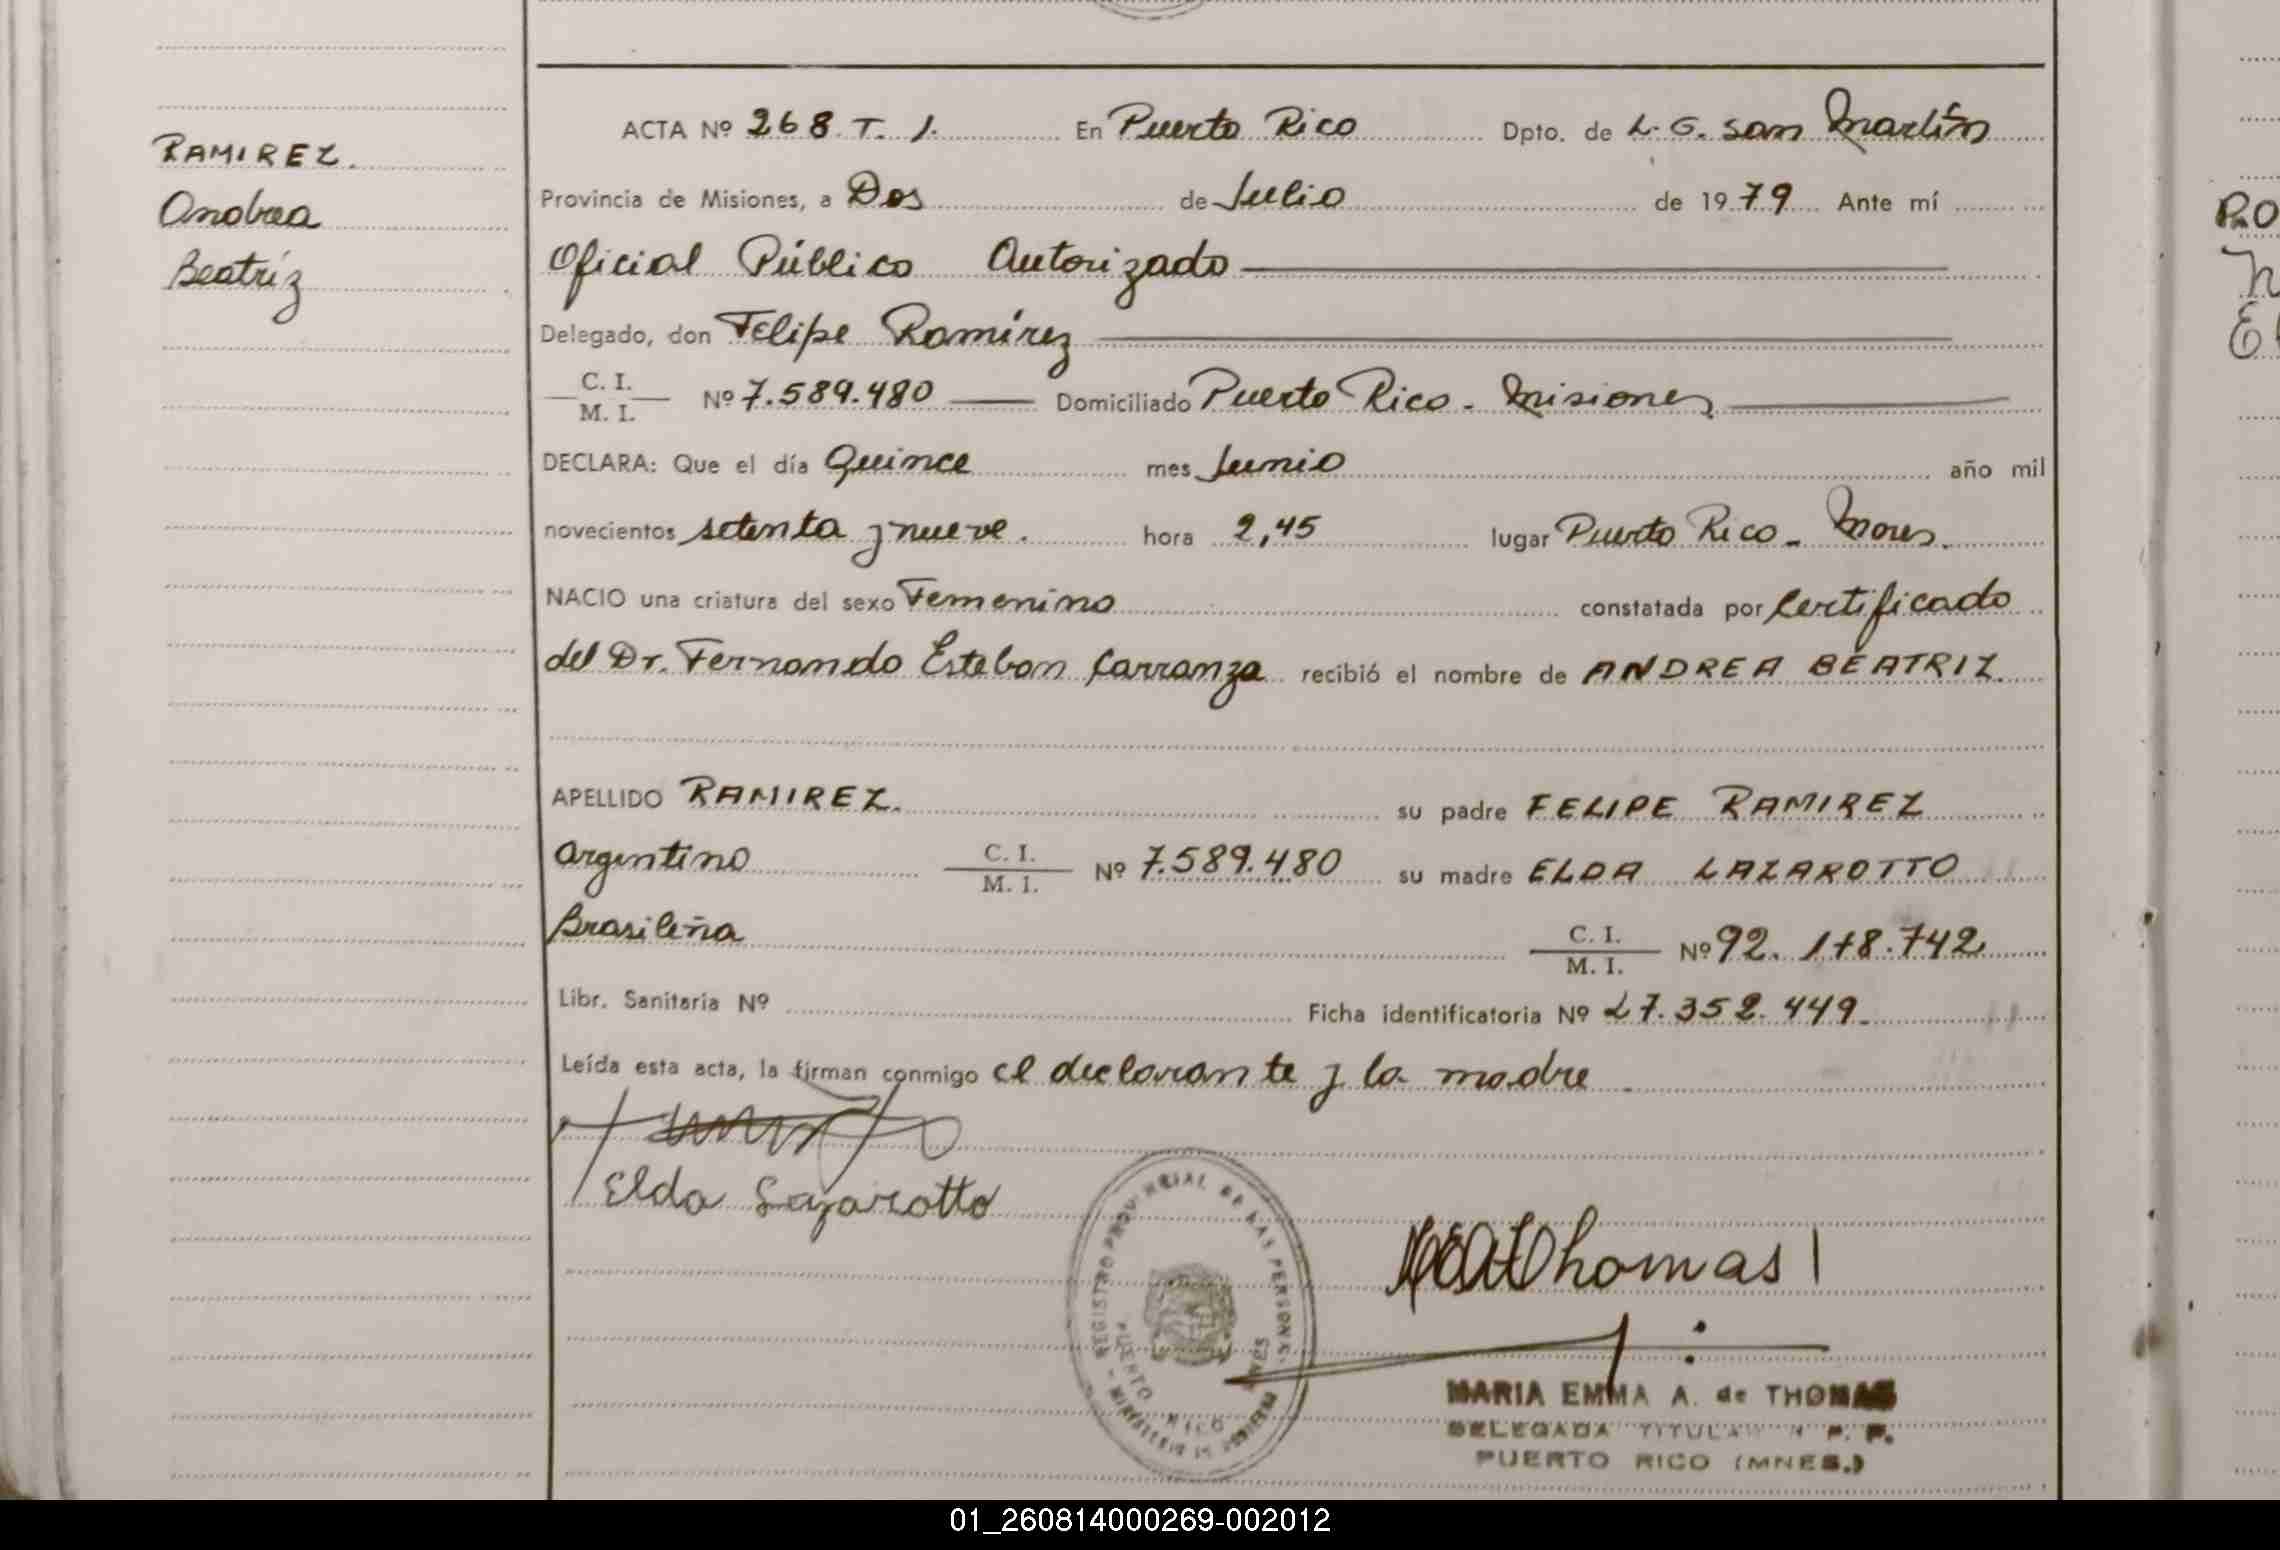 RAMIREZ.
Andrea
Beatríz
ACTA Nº 268 T. 1. En Puerto Rico Dpto. de L. G. San Martín
Provincia de Misiones, a Dos de Julio de 1979 Ante mí
Oficial Público Autorizado
Delegado, don Felipe Ramírez
C. I.
M. I. Nº 7.589.480 Domiciliado Puerto Rico - Misiones
DECLARA: Que el día Quince mes Junio año mil
novecientos setenta y nueve. hora 2,45 lugar Puerto Rico - Mnes.
NACIO una criatura del sexo Femenino constatada por Certificado
del Dr. Fernando Esteban Carranza recibió el nombre de ANDREA BEATRIZ.
APELLIDO RAMIREZ. su padre FELIPE RAMIREZ
argentino C. I.
M. I. Nº 7.589.480 su madre ELDA LAZAROTTO
Brasileña C. I.
M. I. Nº 92.178.742
Libr. Sanitaria Nº Ficha identificatoria Nº 27.352.449.
Leída esta acta, la firman conmigo el declarante y la madre
Elda Lazarotto
REGISTRO PROVINCIAL DE LAS PERSONAS
PUERTO RICO MNES
MINISTERIO DE GOBIERNO
Thomas
MARIA EMMA A. de THOMAS
DELEGADA TITULAR R. P. P.
PUERTO RICO (MNES.)
RO
01_260814000269-002012